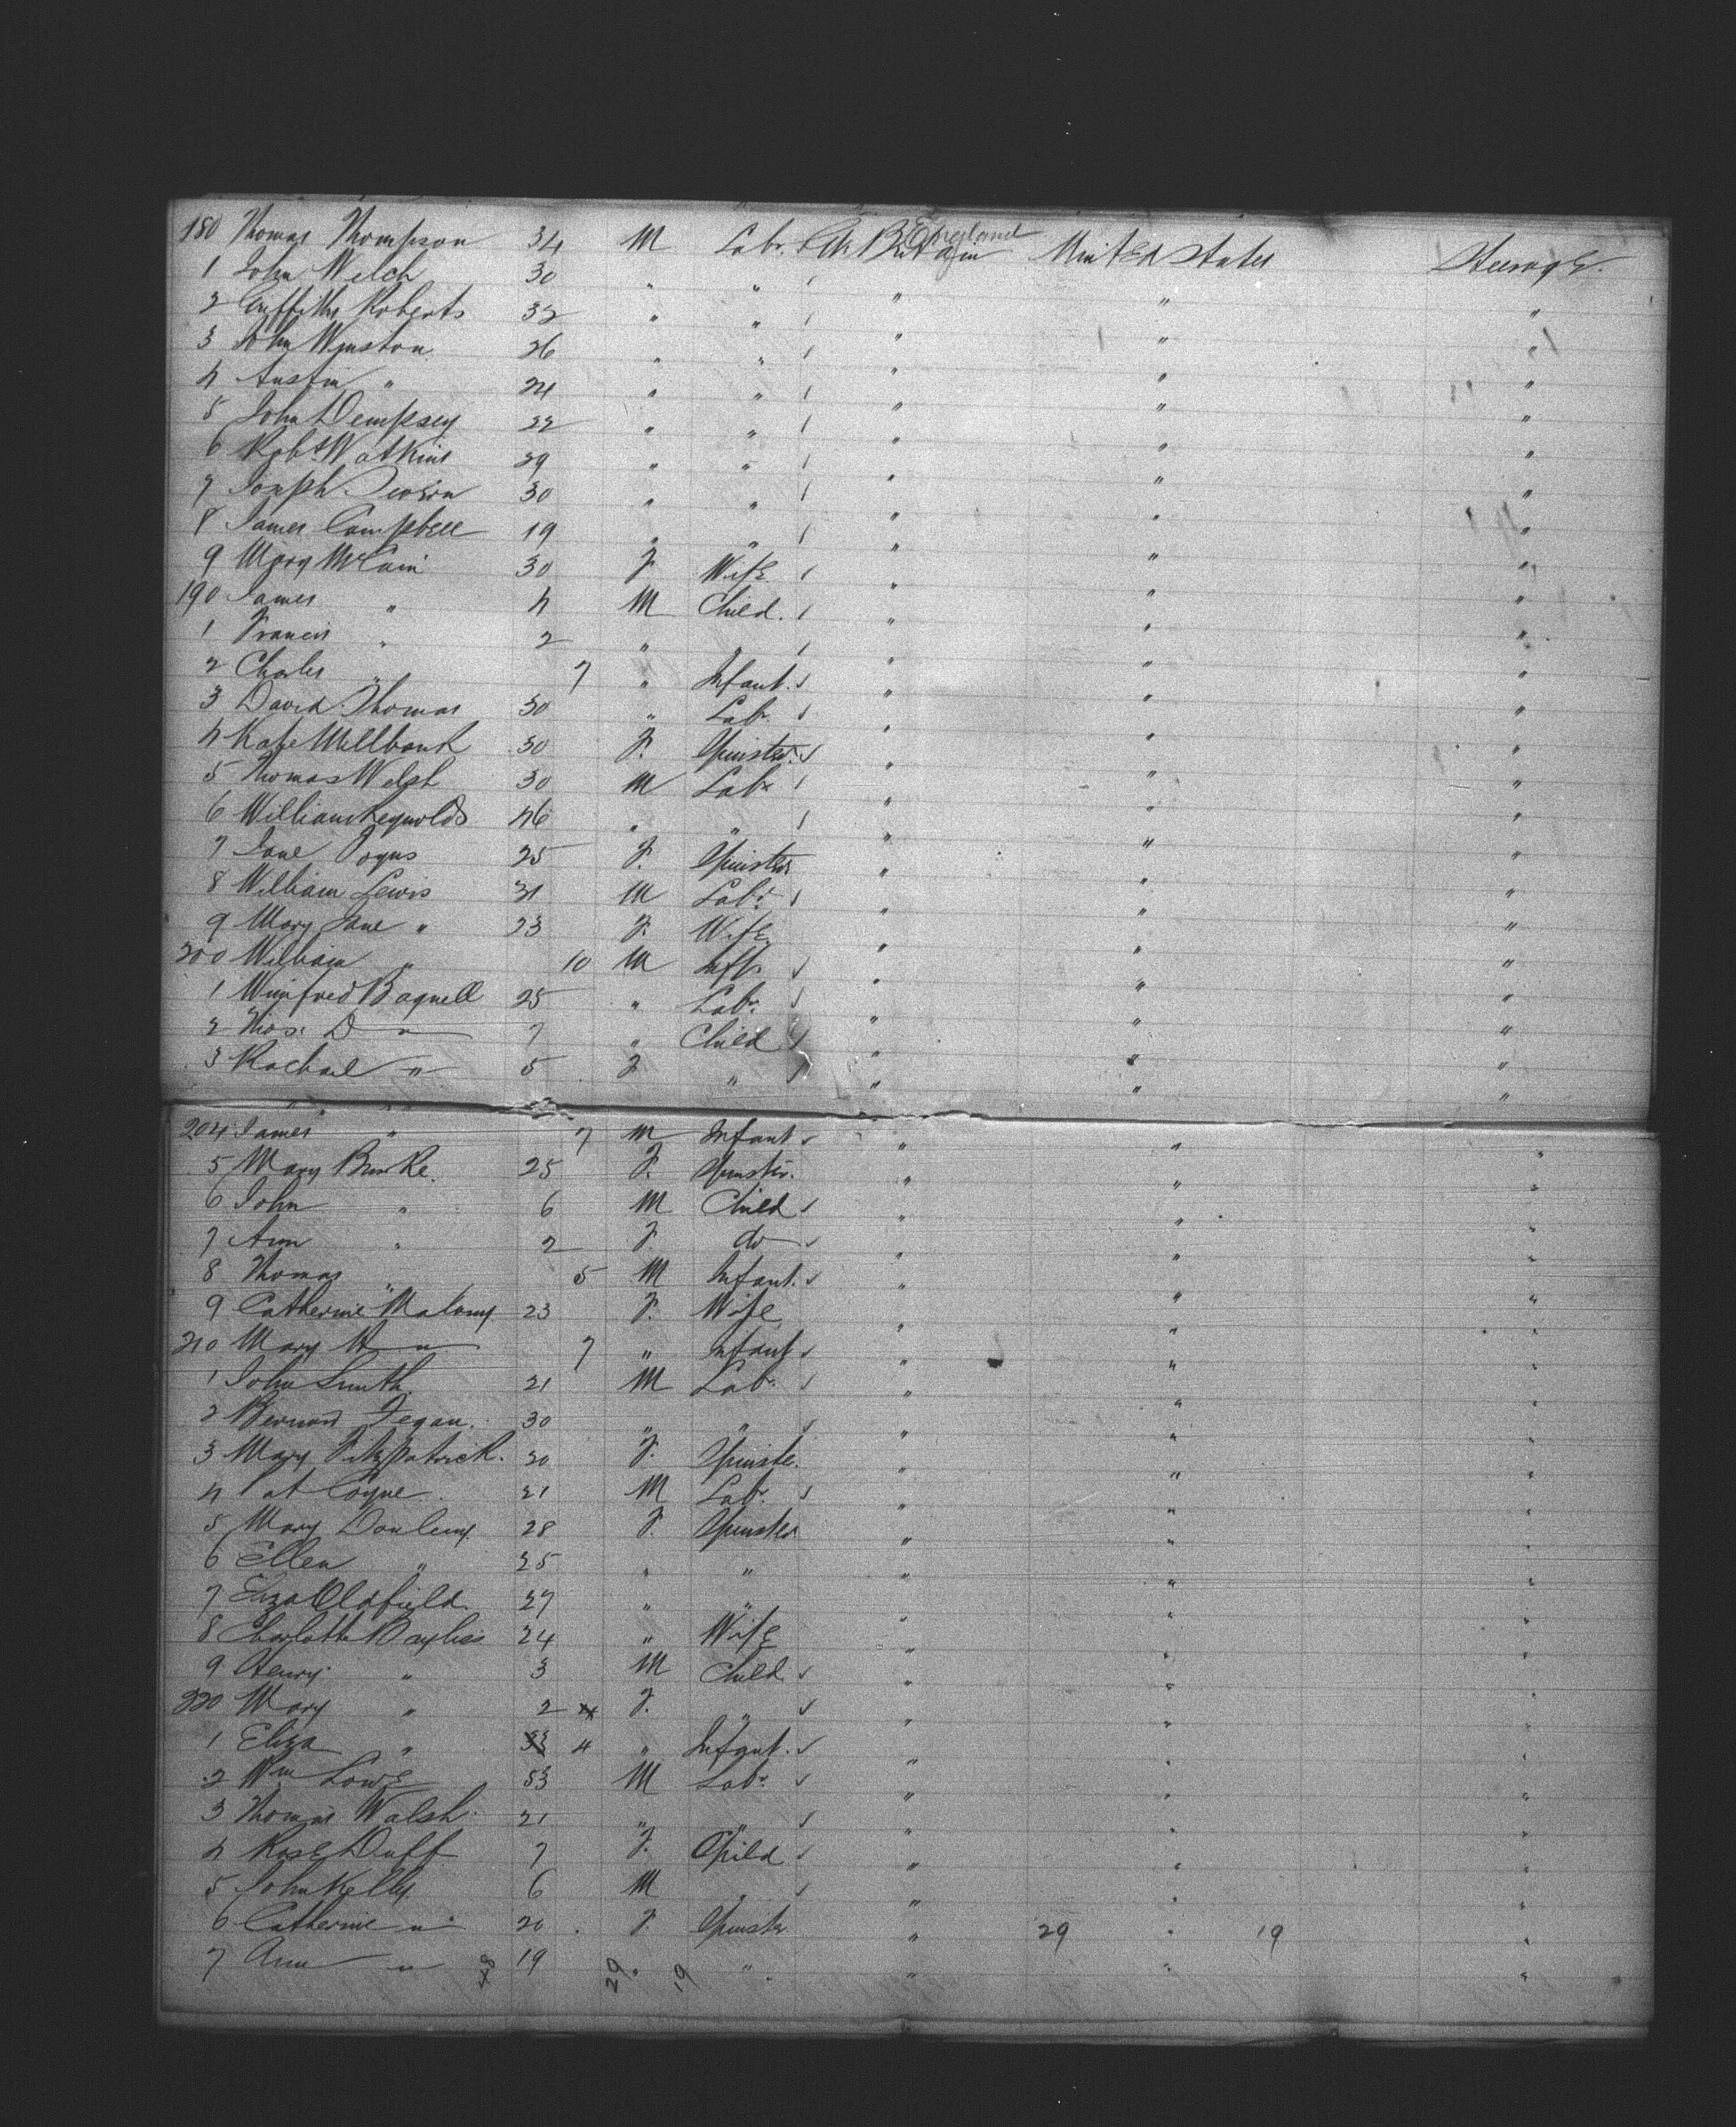 180 Thomas Thompson 34 M Labr. Gt. Britain England United States Steerage.
1 John Welch 30 " " " " "
2 Griffiths Roberts 32 " " " " "
3 John Winston 26 " " " " "
4 Austin " 24 " " " " "
5 John Dempsey 22 " " " " "
6 Robt. Watkins 29 " " " " "
7 Joseph 30 " " " " "
8 James Campbell 19 " " " " "
9 Mary McCain 30 F Wife. " " "
190 James " 4 M Child. " " "
1 Francis " 2 " " " " "
2 Charles " 7 " Infant. " " "
3 David Thomas 30 " Labr. " " "
4 Kate Millbank 30 F. Spinster. " " "
5 Thomas Welsh 30 M Labr " " "
6 William Reynolds 46 " " " " "
7 Jane 25 F. Spinster " " "
8 William Lewis 31 M Labr. " " "
9 Mary Jane " 23 F. Wife. " " "
200 William " 10 M Inft. " " "
1 Winifred Bagnell 25 " Labr. " " "
2 Thos. D " 7 " Child " " "
3 Rachael " 5 F " " " "
204 James " 7 M Infant " " "
5 Mary Burke. 25 F. Spinster. " " "
6 John " 6 M Child " " "
7 Ann " 2 F. do " " "
8 Thomas " 5 M Infant. " " "
9 Catherine Malony 23 F. Wife " " "
210 Mary A " 7 " Infant " " "
1 John Smith. 21 M Labr. " " "
2 Bernard Fegan. 30 " " " " "
3 Mary Fitzpatrick. 20 F. Spinster. " " "
4 Pat Coyne. 21 M Labr. " " "
5 Mary 28 F. Spinster " " "
6 Ellen " 25 " " " " "
7 Eliza Oldfield. 27 " " " " "
8 Charlotte Bayliss 24 " Wife " " "
9 Henry " 3 M Child " " "
220 Mary " 2 F. " " " "
1 Eliza " 4 " Infant. " " "
2 Wm Lowe 53 M Labr. " " "
3 Thomas Walsh. 21 " " " " "
4 Rose Duff 7 F. Child " " "
5 John Kelly 6 M " " " "
6 Catherine " 20 F. Spinster " 29 " 19 "
7 Ann " 48 19 29 " 19 " " " "